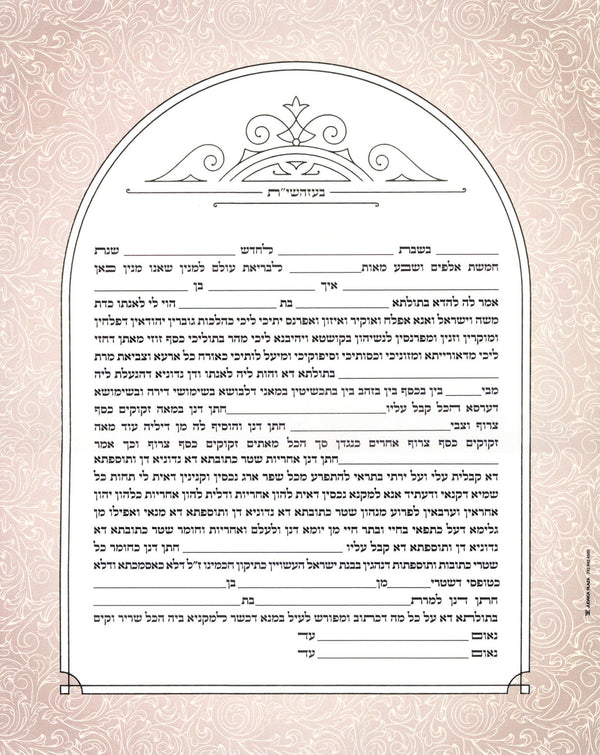 בעזהשי״ת
בשבת לחדש שנת
חמשת אלפים ושבע מאות לבריאת עולם למנין שאנו מנין כאן
איך בן
אמר לה להדא בתולתא בת הוי לי לאנתו כדת
משה וישראל ואנא אפלח ואוקיר ואיזון ואפרנס יתיכי ליכי כהלכות גוברין יהודאין דפלחין
ומוקרין וזנין ומפרנסין לנשיהון בקושטא ויהיבנא ליכי מהר בתוליכי כסף זוזי מאתן דחזי
ליכי מדאורייתא ומזוניכי וכסותיכי וסיפוקיכי ומיעל לותיכי כאורח כל ארעא וצביאת מרת
בתולתא דא והות ליה לאנתו ודן נדוניא דהנעלת ליה
מבי בין בכסף בין בזהב בין בתכשיטין במאני דלבושא בשימושי דירה ובשימושא
דערסא הכל קבל עליו חתן דנן במאה זקוקים כסף
צרוף וצבי חתן דנן והוסיף לה מן דיליה עוד מאה
זקוקים כסף צרוף אחרים כנגדן סך הכל מאתים זקוקים כסף צרוף וכך אמר
חתן דנן אחריות שטר כתובתא דא נדוניא דן ותוספתא
דא קבלית עלי ועל ירתי בתראי להתפרע מכל שפר ארג נכסין וקנינין דאית לי תחות כל
שמיא דקנאי ודעתיד אנא למקנא נכסין דאית להון אחריות ודלית להון אחריות כלהון יהון
אחראין וערבאין לפרוע מנהון שטר כתובתא דא נדוניא דן ותוספתא דא מנאי ואפילו מן
גלימא דעל כתפאי בחיי ובתר חיי מן יומא דנן ולעלם ואחריות וחומר שטר כתובתא דא
נדוניא דן ותוספתא דא קבל עליו חתן דנן כחומר כל
שטרי כתובות ותוספתות דנהגין בבנת ישראל העשויין כתיקון חכמינו ז״ל דלא כאסמכתא ודלא
כטופסי דשטרי מן בן
חתן דנן למרת בת
בתולתא דא על כל מה דכתוב ומפורש לעיל במנא דכשר למקניא ביה הכל שריר וקים
נאום עד
נאום עד